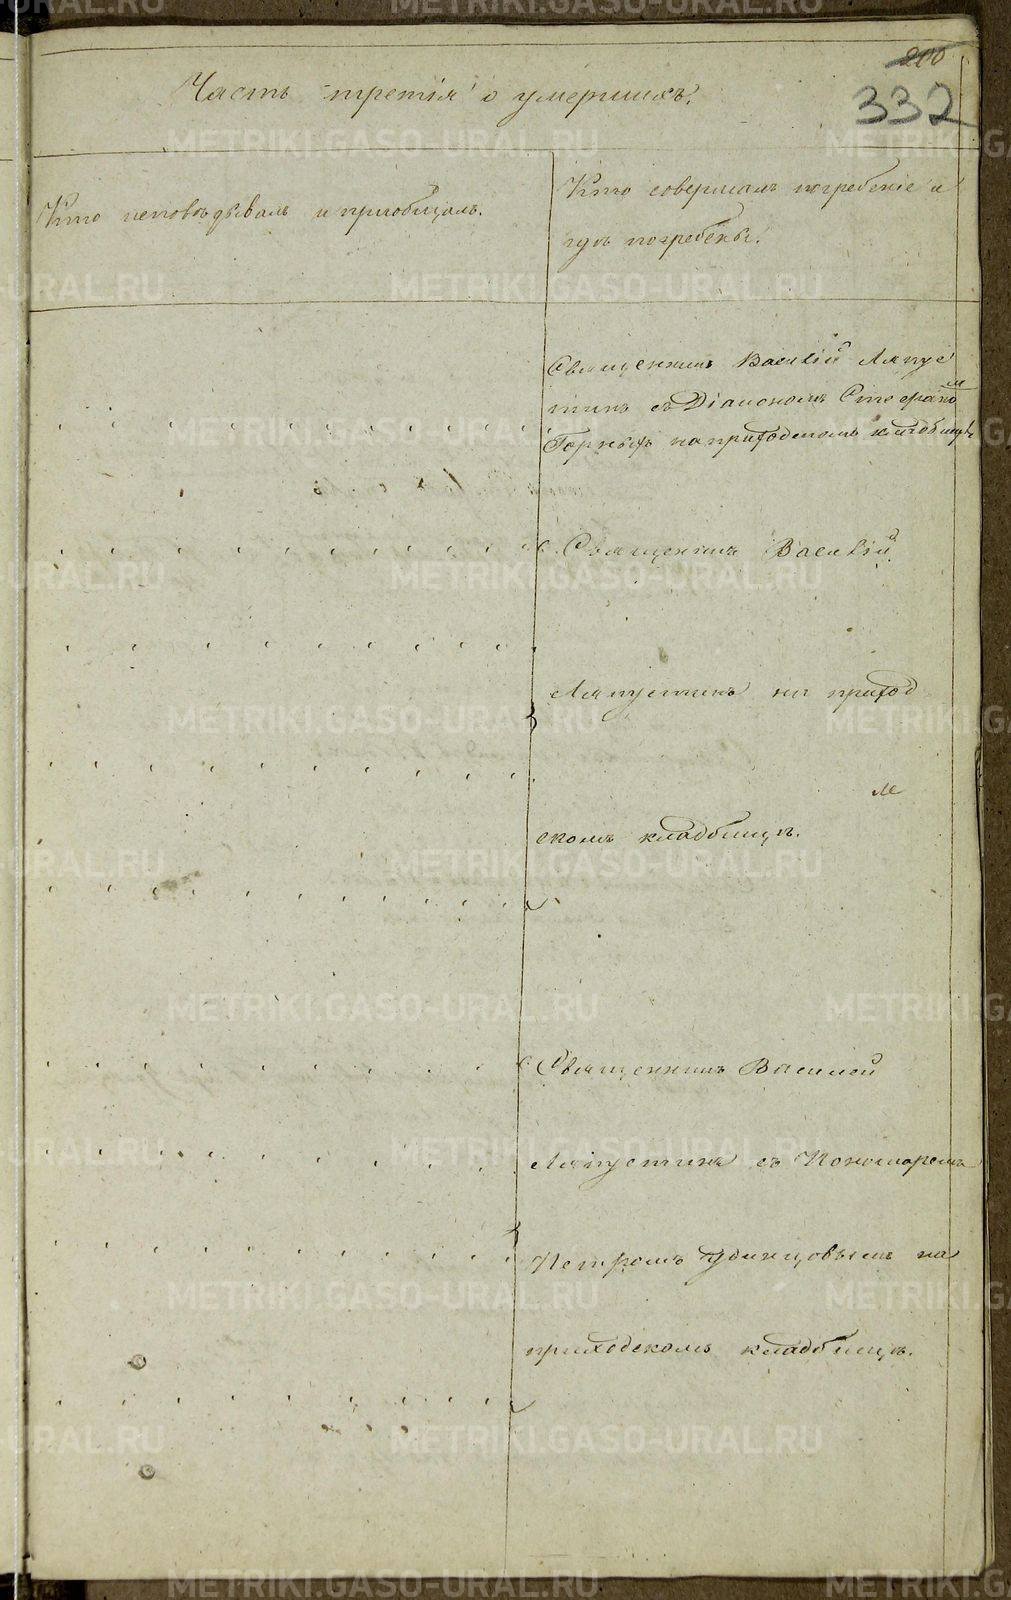 210
332
Часть третія о умершихъ.
Кто исповѣдывалъ и приобщалъ.
Кто совершалъ погребеніе и
гдѣ погребены.
Священникъ Василій Ляпус
тинъ съ Діакономъ Стефано
м
Горныхъ на приходскомъ кладбищѣ
Священникъ Василій
Ляпустинъ на приход
скомъ кладбищѣ.
Священникъ Василей
Ляпустинъ съ Пономаремъ
Петромъ Удинцовымъ на
приходскомъ кладбищѣ.
METRIKI.GASO-URAL.RU